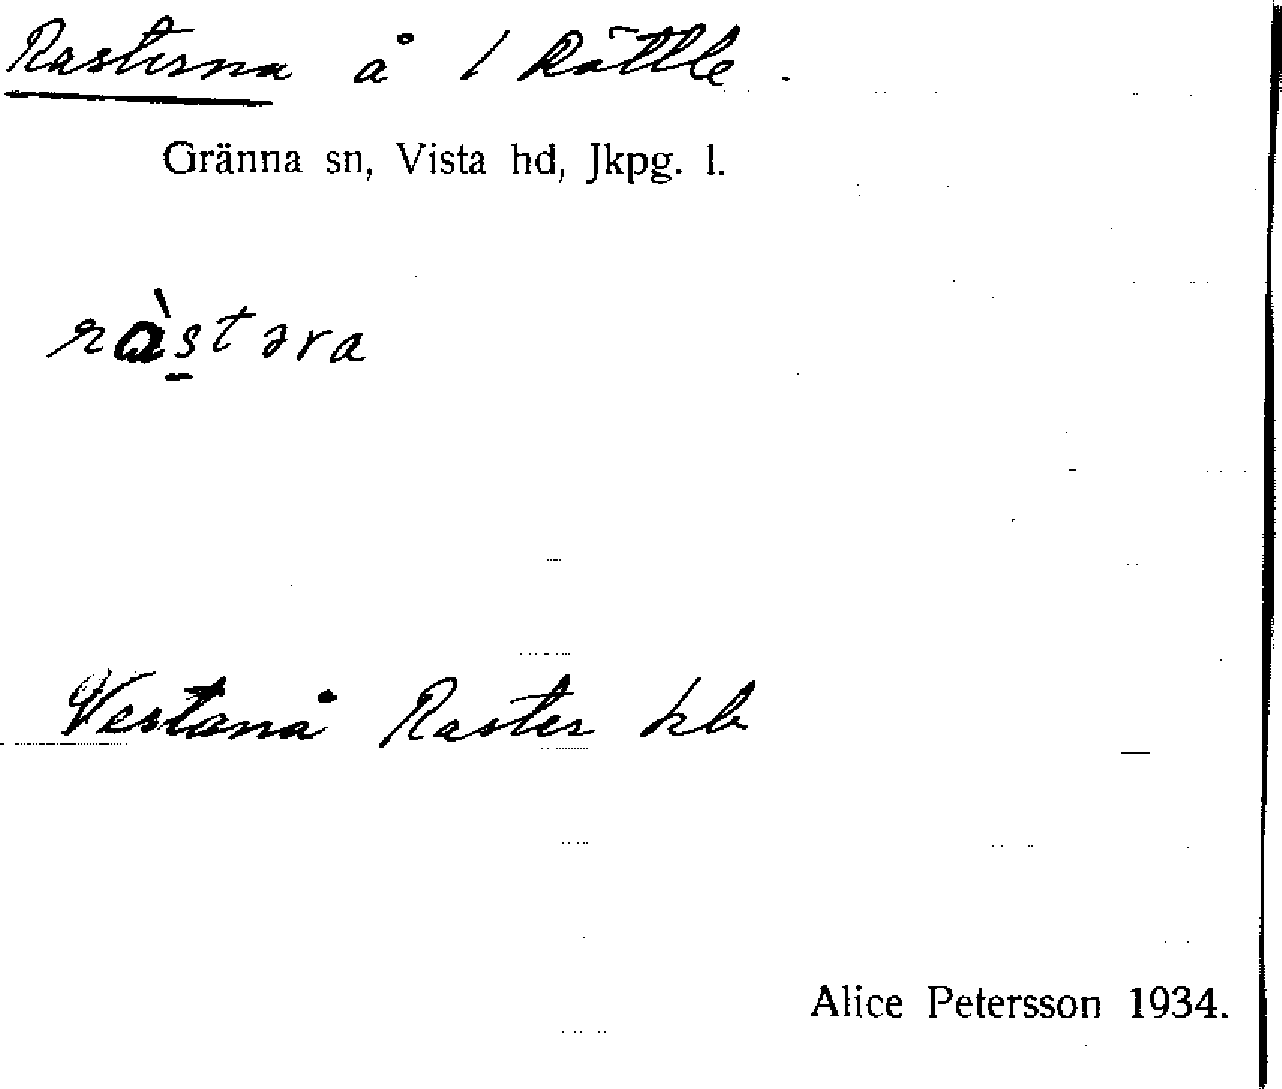 Rasterna å 1 Röttle.
Gränna sn, Vista hd, Jkpg. l.
ràstəra
Vestanå Raster kb
Alice Petersson 1934.